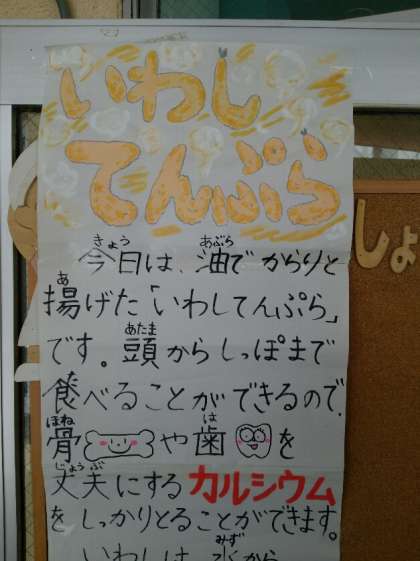 いわし
てんぷら
今日は、油でからりと
揚げた「いわしてんぷら」
です。頭からしっぽまで
食べることができるので、
骨や歯を
丈夫にするカルシウム
をしっかりとることができます。
いわしは、水から
しょ